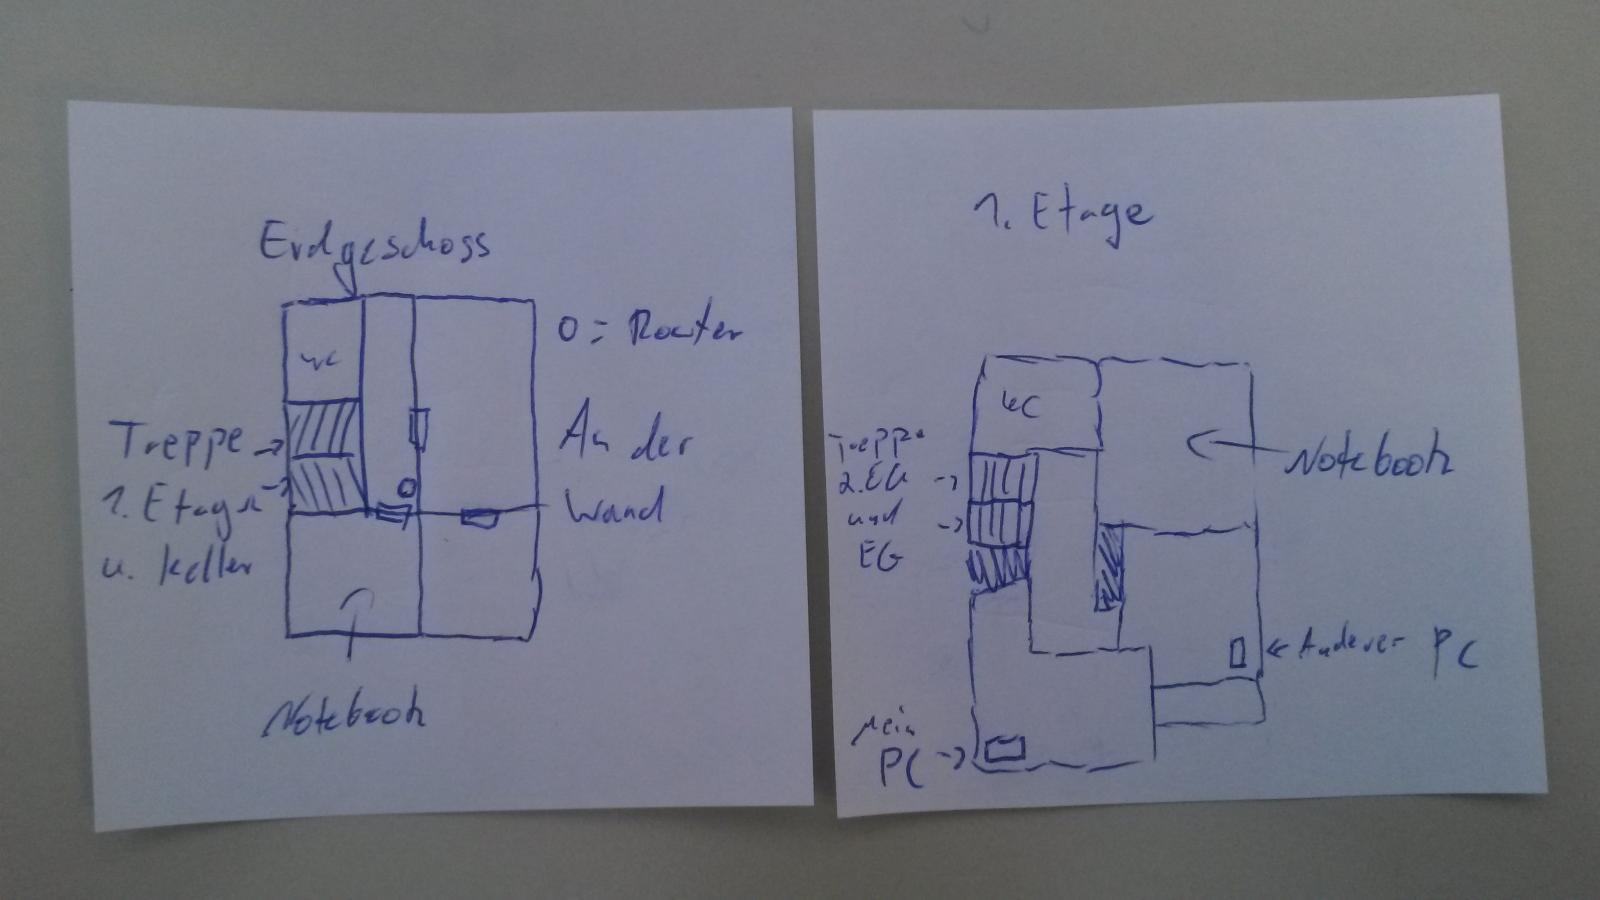 Erdgeschoss
O = Router
WC
Treppe
1. Etage
u. Keller
An der
Wand
Notebook
1. Etage
WC
Treppe
2. EG
und
EG
Notebook
Anderer PC
Mein
PC